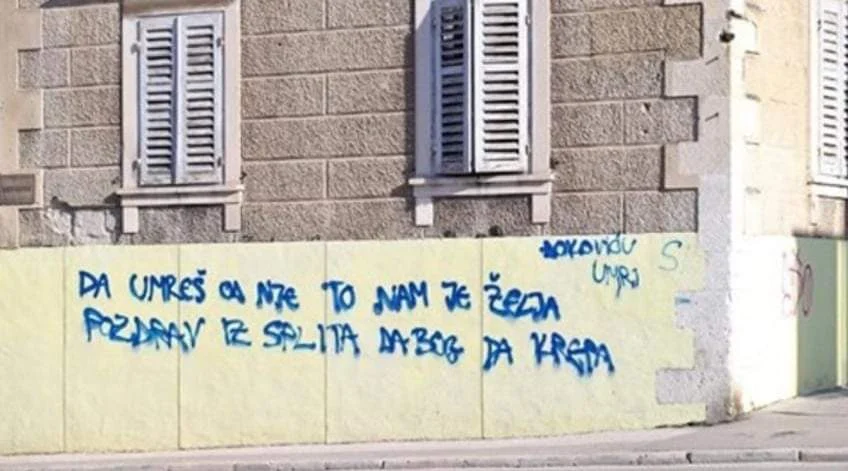 ĐOKOVIĆU
UMRI
DA UMREŠ OD NJE TO NAM JE ŽELJA
POZDRAV IZ SPLITA DA BOG DA KREPA